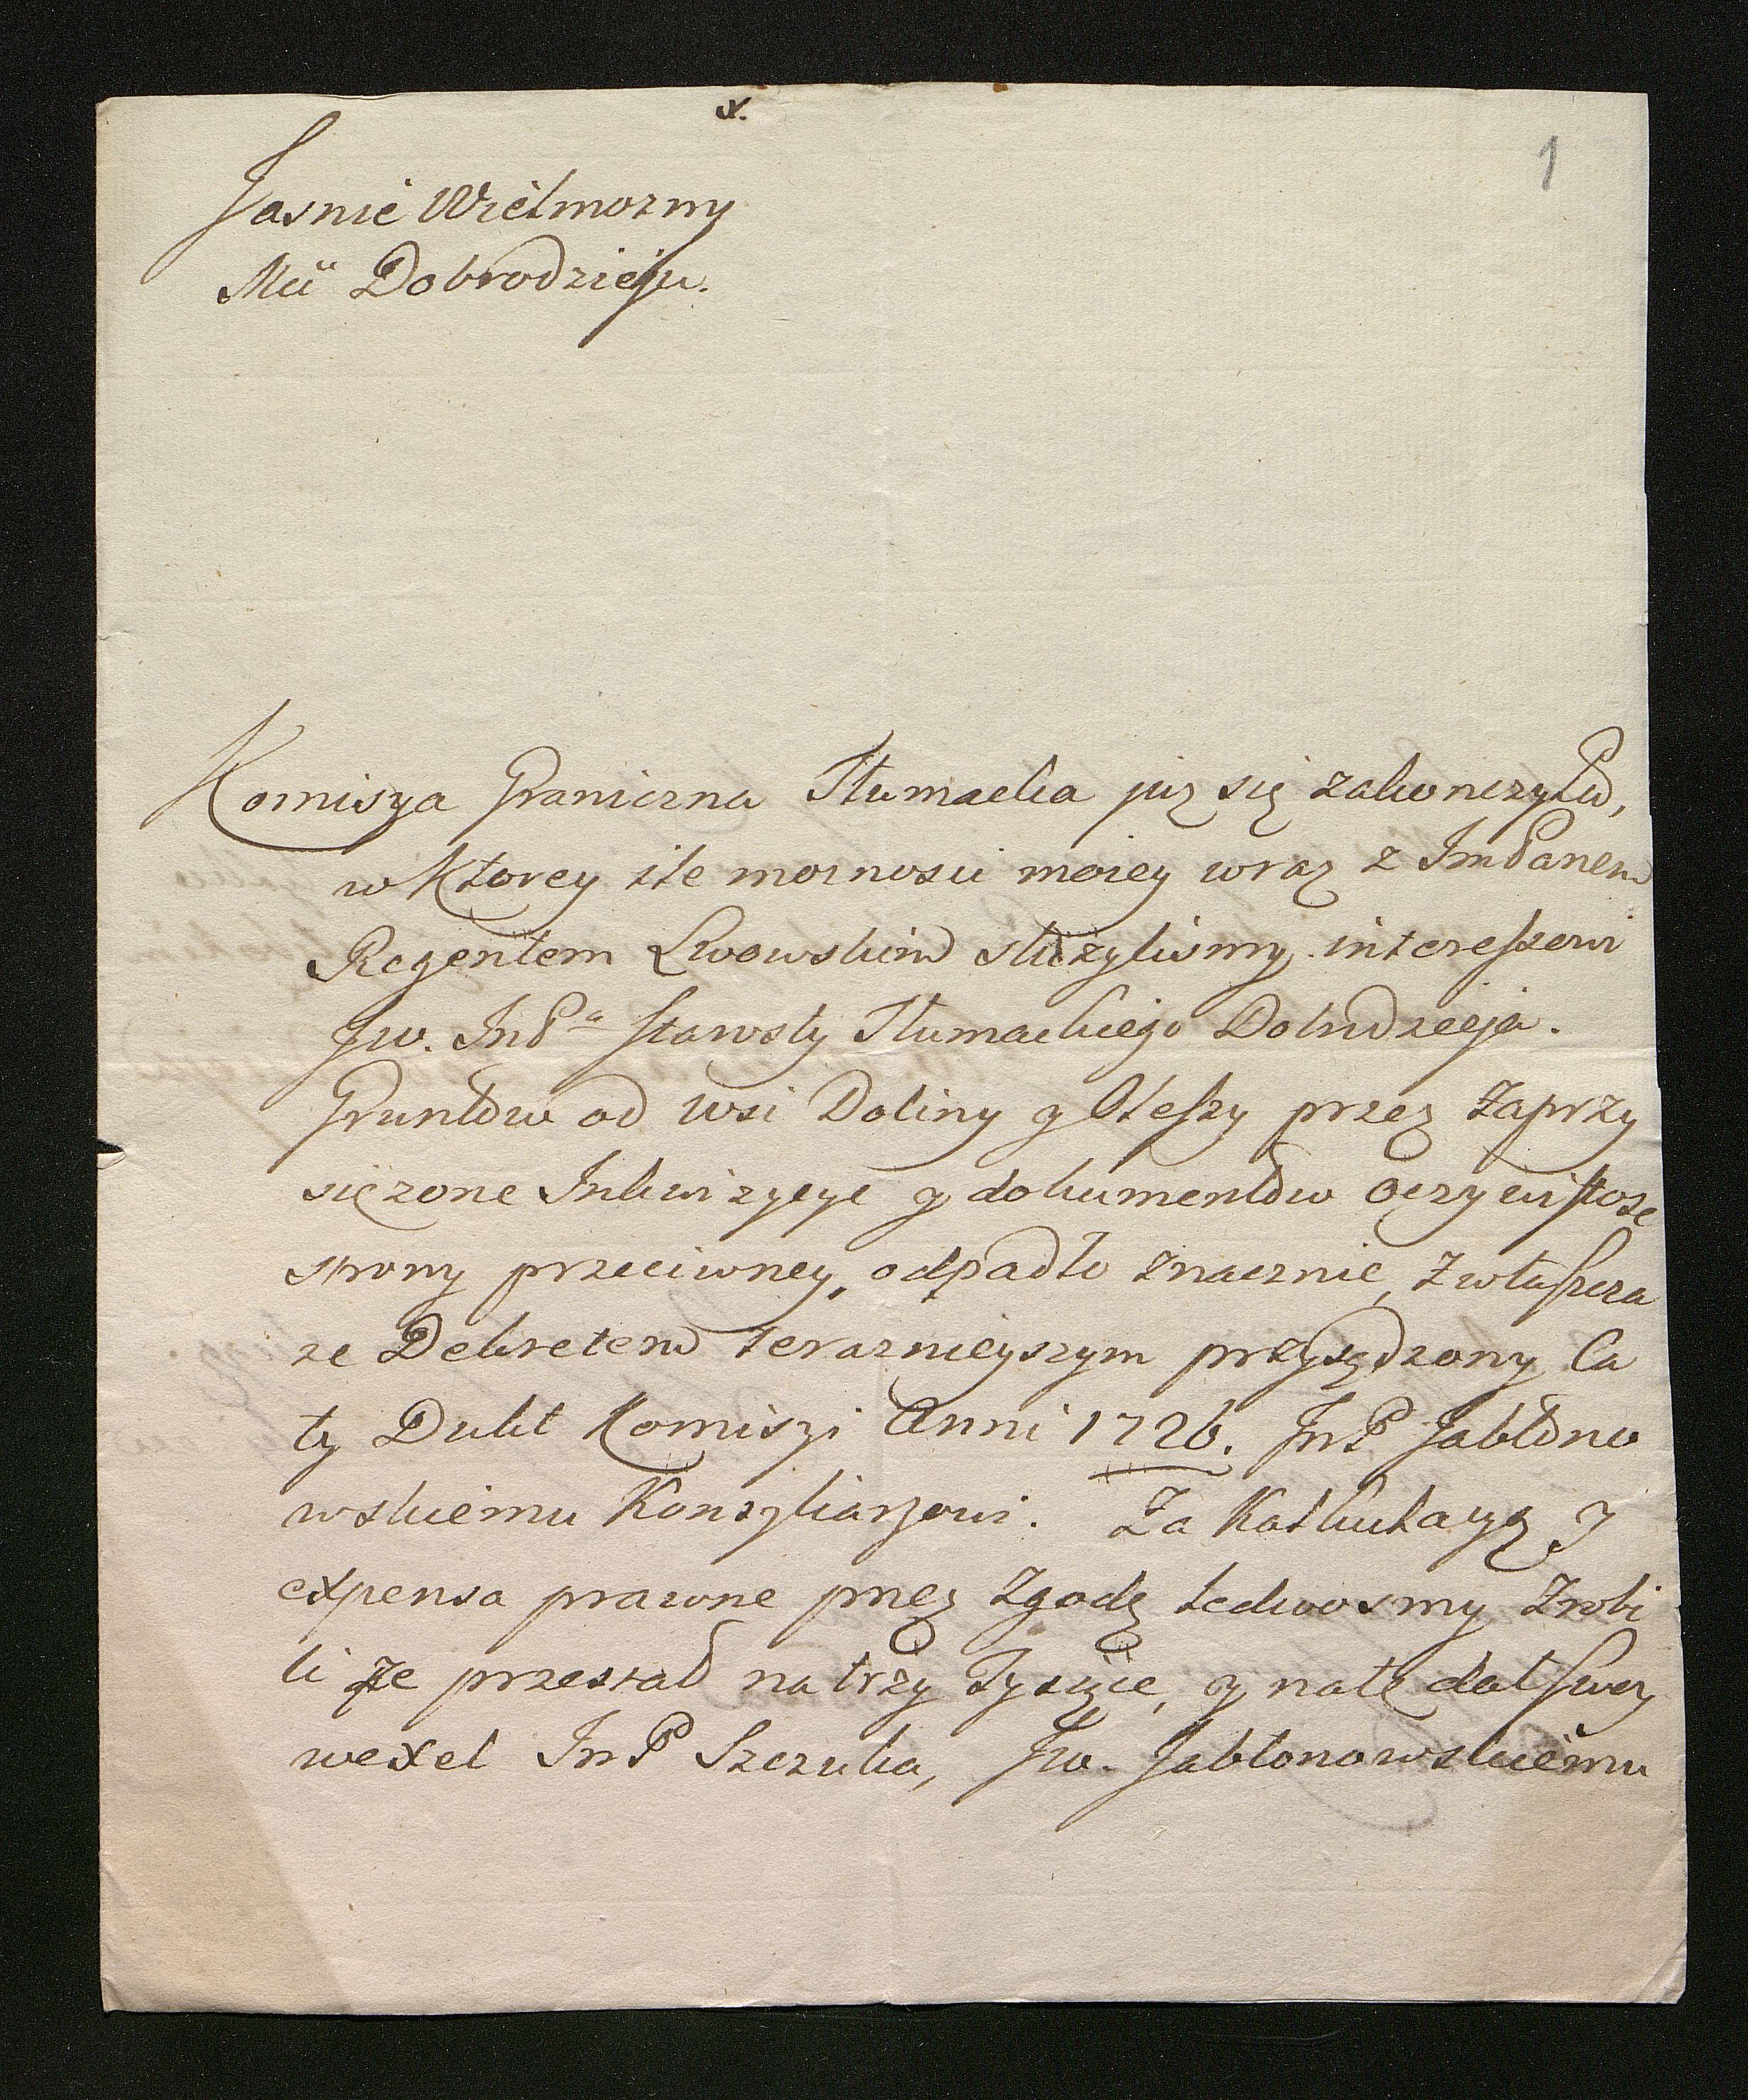 1
Jasnie Wielmozny
Mci Dobrodzieju.
Komisya Graniczna Tłumacka juz się zakonczyła,
w Ktorey ile moznosci moiey wraz z ImPanem
Regentem Lwowskim słuzylismy interessowi
Jw. ImPa Starosty Tłumackiego Dobrodzieja.
Gruntow od wsi Doliny y Oleszy przez zaprzy
siężone Inkwizycye y dokumentow oczywistosc
strony przeciwney, odpadło znacznie, zwłaszcza
ze Dekretem teraznieyszym przysądzony Ca
ły Dukt Komisyi Anni 1726. ImP Jabłono
wskiemu Konsyliarzowi. Za Kalkulacyą y
expensa prawne przez zgodę ledwosmy zrobi
li ze przestał na trzy Tysiące, y na te dał swoy
wexel ImP Szczuka, Jw. Jabłonowskiemu